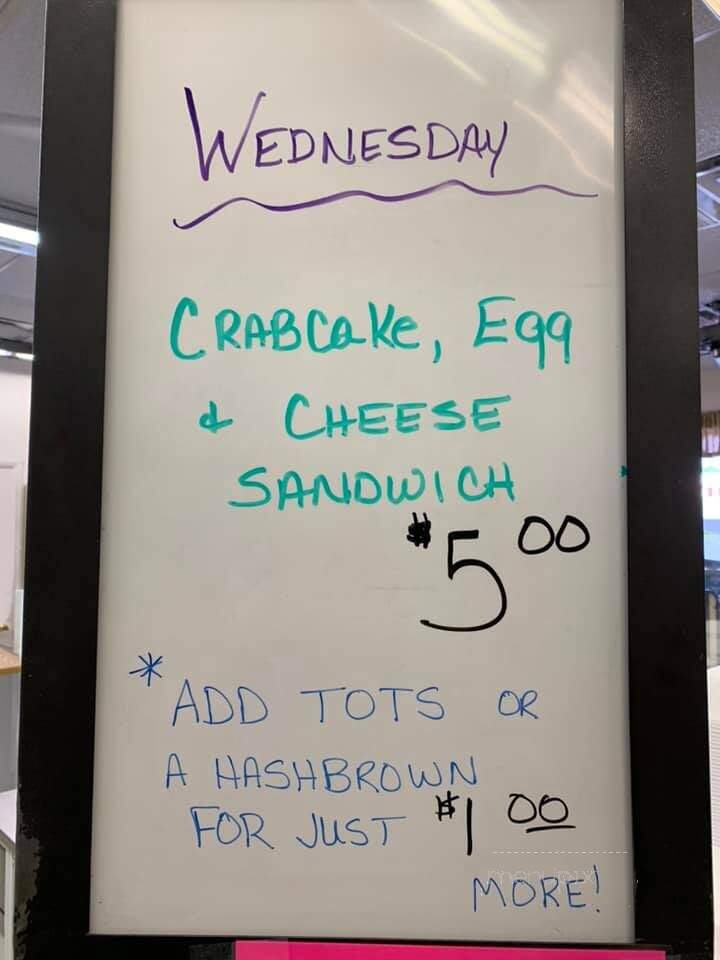 WEDNESDAY
CRABCaKe, Egg
& CHEESE
SANDWICH
$5 00
*ADD TOTS OR
A HASHBROWN
FOR JUST $1 00
MORE!